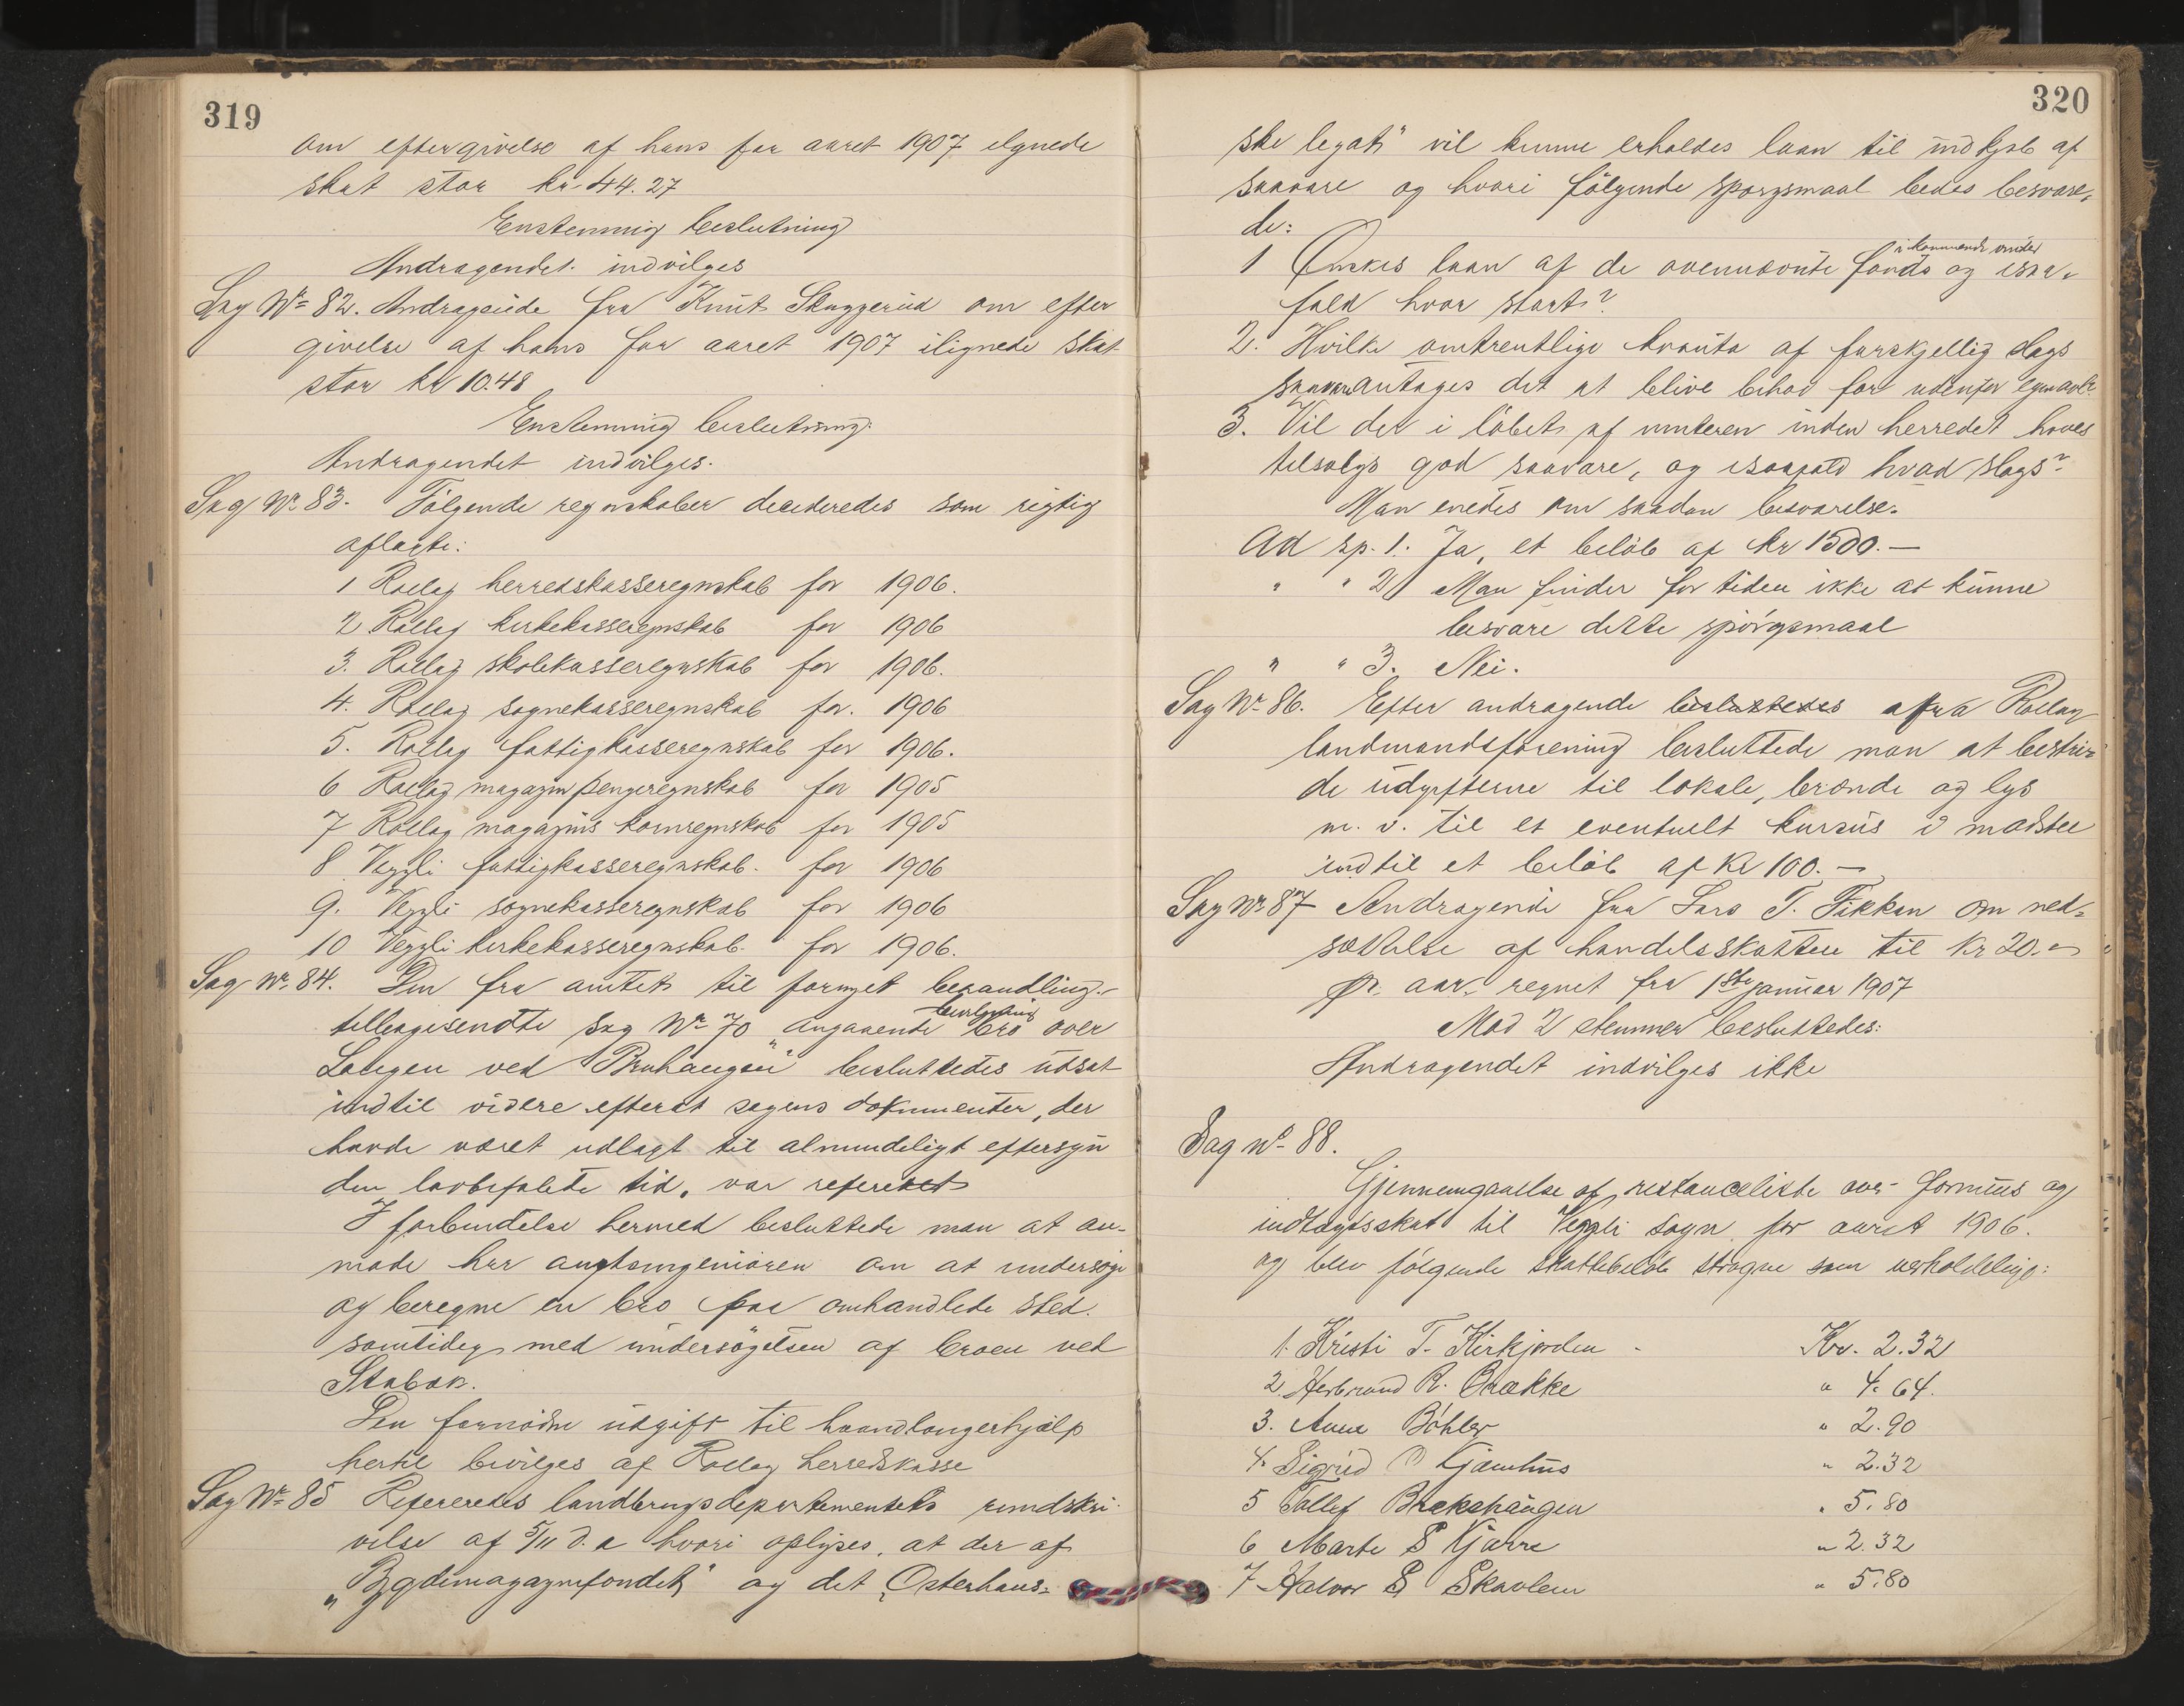 319
om eftergivelse af hans for aaret 1907 ilignede
skat stor kr 44.27
Enstemmig beslutning
Andragendet indvilges
Sag Nr 82. Andragende fra Knut Skuggerud om efter
givelse af hans for aaret 1907 ilignede skat
stor kr 10.48
Enstemmig beslutning.
Andragendet indvilges.
Sag Nr 83. Følgende regnskaber decideredes som rigtig
aflagte:
1 Rollag herredskasseregnskab for 1906.
2 Rollag kirkekasseregnskab for 1906
3. Rollag skolekasseregnskab for 1906.
4. Rollag sognekasseregnskab for. 1906
5. Rollag fattigkasseregnskab for 1906.
6 Rollag magazinpengeregnskab for 1905
7 Rollag magazins kornregnskab for 1905
8 Veggli fattigkasseregnskab. for 1906
9. Veggli sognekasseregnskab for 1906
10 Veggli kirkekasseregnskab. for 1906.
Sag Nr. 84. Den fra amtet til fornyet behandling
bevilgning
tilbagesendte sag Nr 70 angaaende bro over
Laagen ved "Bruhaugen" besluttedes udsat
indtil videre efterat sagens dokumenter, der
havde været udlagt til almindeligt eftersyn
den lovbefalete tid, var refereret
I forbindelse hermed besluttede man at an-
mode hrr amtsingeniøren om at undersøge
og beregne en bro paa omhandlede sted.
samtidig med undersøgelsen af broen ved
Stabæk.
Den fornødne udgift til haandlangerhjælp
hertil bevilges af Rollag herredskasse
Sag Nr 85 Refereredes landbrugsdepartementets rundskri-
velse af 5/11 d. a hvori oplyses, at der af
"Bygdemagazinfondet" og det "Osterhaus-
320
ske legat" vil kunne erholdes laan til indkjøb af
saavare og hvori følgende spørgsmaal bedes besvare-
de:
i kommende vinter
1 Ønskes laan af de ovennævnte fonds og isaa-
fald hvor stort?
2. Hvilke omtrentlige kvanta af forskjellig slags
saavare antages det at blive behov for udenfor egen avl?
3. Vil der i løbet af vinteren inden herredet haves
tilsalgs god saavare, og isaafald hvad slags?
Man enedes om saadan besvarelse.
Ad sp. 1. Ja, et beløb af kr 1500.—
" " 2 Man finder for tiden ikke at kunne
besvare dette spørgsmaal
" " 3. Nei.
Sag Nr 86. Efter andragende besluttedes fra Rollag
landmandsforening besluttede man at bestri-
de udgifterne til lokale, brænde og lys
m. v. til et eventuelt kursus i madstel
indtil et beløb af Kr 100.—
Sag Nr 87 Andragende fra Lars T. Fikkan om ned-
sættelse af handelsskatten til Kr 20.—
pr. aar regnet fra 1ste januar 1907
Mod 2 stemmer besluttedes:
Andragendet indvilges ikke
Sag no 88.
Gjennemgaaelse af restanceliste over formues og
indtægtsskat til Veggli sogn for aaret 1906.
og blev følgende skattebeløb strøgne som uerholdelige:
1. Kristi T. Kirkjorden Kr. 2.32
2 Herbrand R. Brække " 4.64.
3. Anne Bøhler " 2.90
4. Sigrid O Kjemhus " 2.32
5 Tollef Brekshaugen " 5.80
6 Marte S Kjarre " 2.32
7 Halvor S Skavlem " 5.80